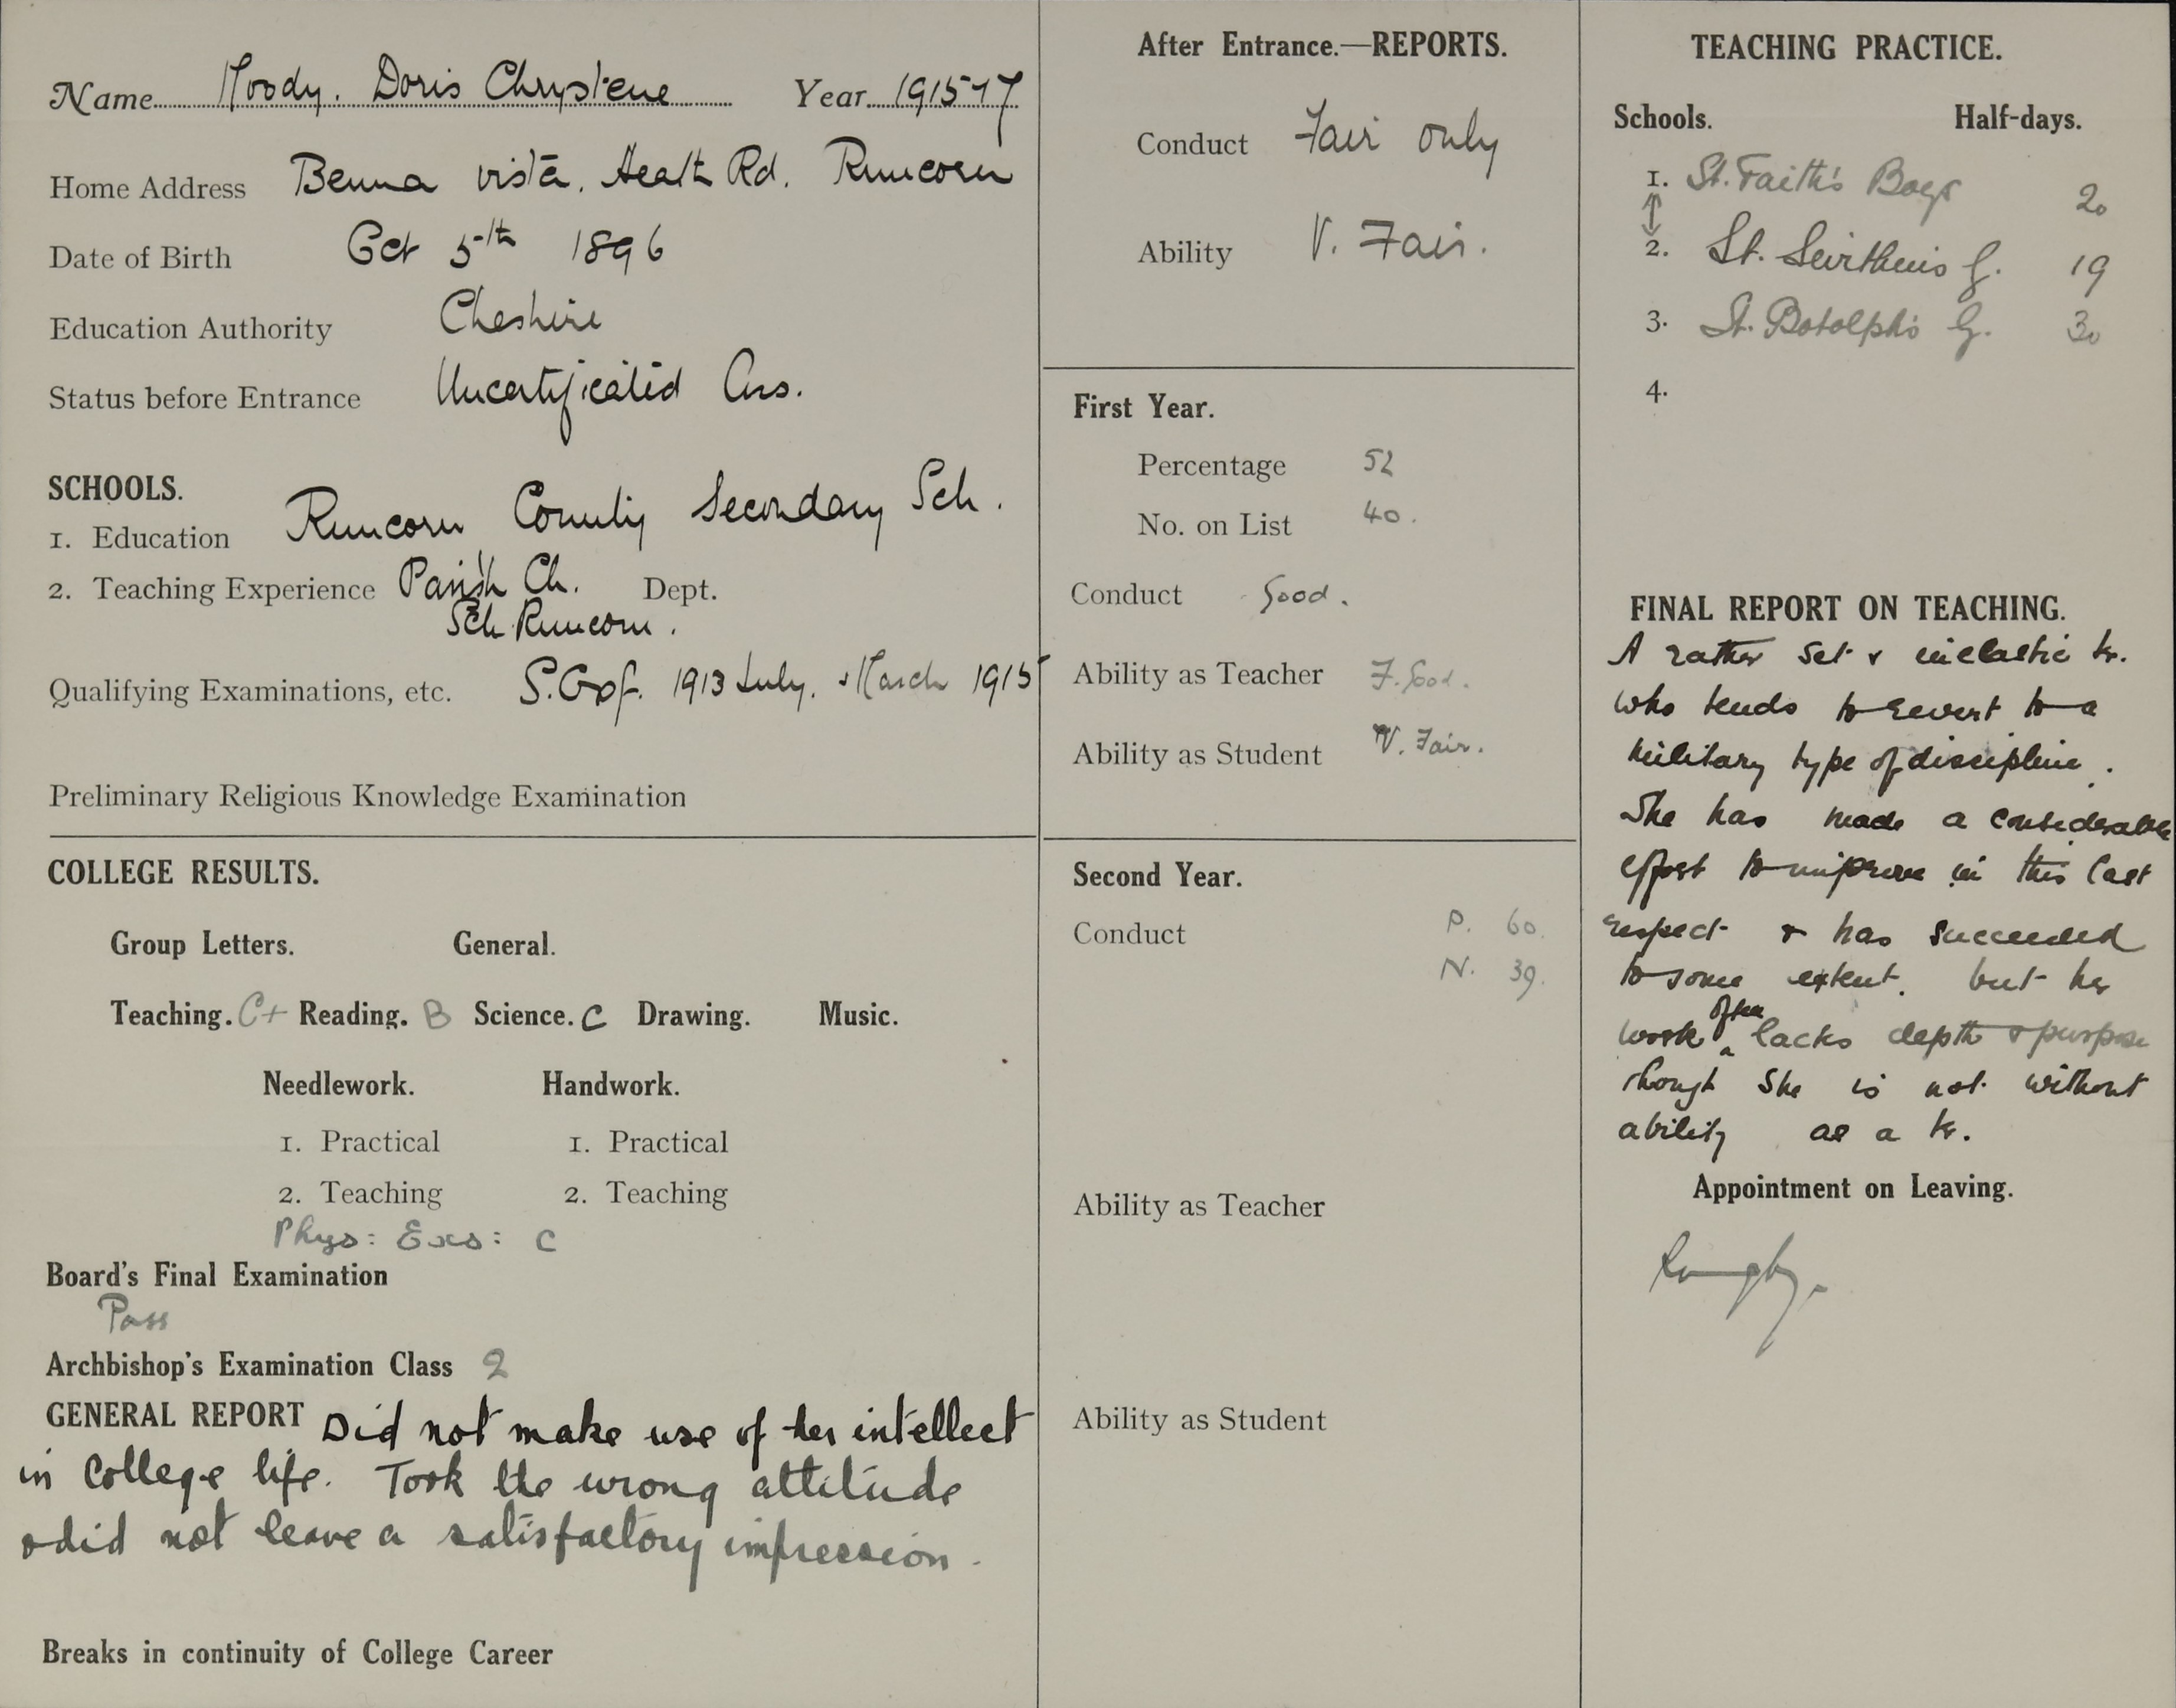 Name Moody. Doris Chrystene Year 1915-17
Home Address Benna vista, Heath Rd. Runcorn
Date of Birth Oct 5th 1896
Education Authority Cheshire
Status before Entrance Uncertificated Ass.
SCHOOLS.
1. Education Runcorn County Secondary Sch.
2. Teaching Experience Parish Ch. Dept.
Sch. Runcorn.
Qualifying Examinations, etc. S. Oxf. 1913 July. March 1915
Preliminary Religious Knowledge Examination
COLLEGE RESULTS.
Group Letters. General.
Teaching. C+ Reading. B Science. C Drawing. Music.
Needlework. Handwork.
1. Practical 1. Practical
2. Teaching 2. Teaching
Phys: Exs: C
Board's Final Examination
Pass
Archbishop's Examination Class 2
GENERAL REPORT Did not make use of her intellect
in College life. Took the wrong attitude
& did not leave a satisfactory impression.
Breaks in continuity of College Career
After Entrance.—REPORTS.
Conduct Fair only
Ability V. Fair.
First Year.
Percentage 52
No. on List 40.
Conduct Good.
Ability as Teacher F. Good.
Ability as Student V. Fair.
Second Year.
Conduct P. 60.
N. 39.
Ability as Teacher
Ability as Student
TEACHING PRACTICE.
Schools. Half-days.
1. St. Faith's Boys 20
2. St. Swithins G. 19
3. St. Botolph's G. 30
4.
FINAL REPORT ON TEACHING.
A rather set & inelastic tr.
who tends to revert to a
military type of discipline.
She has made a considerable
effort to improve in this last
respect & has succeeded
to some extent, but her
work often lacks depth & purpose
though she is not without
ability as a tr.
Appointment on Leaving.